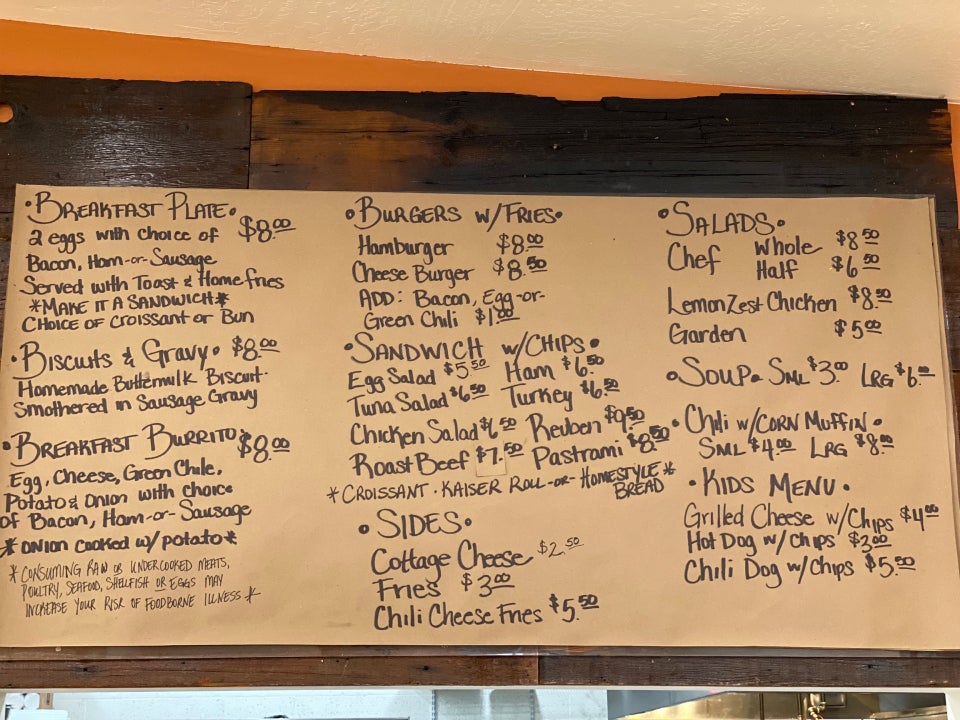 • BREAKFAST PLATE •
2 eggs with choice of $8.00
Bacon, Ham-or-Sausage
Served with Toast & Homefries
*MAKE IT A SANDWICH*
CHOICE OF CROISSANT or BUN
• Biscuits & Gravy • $8.00
Homemade Buttermilk Biscuit
Smothered in Sausage Gravy
• BREAKFAST BURRITO • $8.00
Egg, Cheese, Green Chile,
Potato & Onion with choice
of Bacon, Ham-or-Sausage
*ONION COOKED w/ POTATO*
*CONSUMING RAW OR UNDERCOOKED MEATS,
POULTRY, SEAFOOD, SHELLFISH OR EGGS MAY
INCREASE YOUR RISK OF FOODBORNE ILLNESS*
• BURGERS w/FRIES •
Hamburger $8.00
Cheese Burger $8.50
ADD: Bacon, Egg-or-
Green Chili $1.00
• SANDWICH w/CHIPS •
Egg Salad $5.50 Ham $6.50
Tuna Salad $6.50 Turkey $6.50
Chicken Salad $6.50 Reuben $9.50
Roast Beef $7.50 Pastrami $8.50
*CROISSANT • KAISER ROLL-OR-HOMESTYLE*
BREAD
• SIDES •
Cottage Cheese $2.50
Fries $3.00
Chili Cheese Fries $5.50
• SALADS •
Chef Whole $8.50
Half $6.50
Lemon Zest Chicken $8.50
Garden $5.00
• SOUP • SML $3.00 LRG $6.00
• Chili w/CORN MUFFIN •
SML $4.00 LRG $8.00
• KIDS MENU •
Grilled Cheese w/Chips $4.00
Hot Dog w/chips $3.00
Chili Dog w/chips $5.50